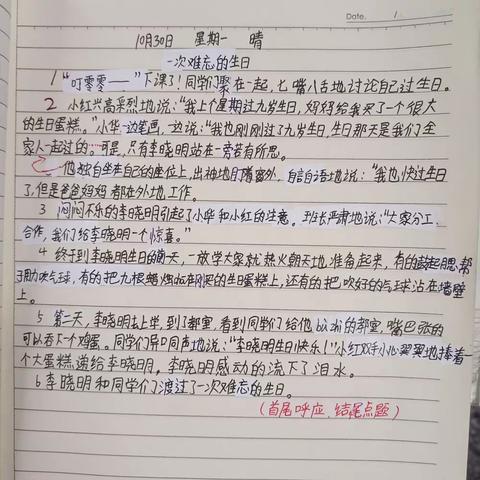 Date. /
10月30日 星期一 晴
一次难忘的生日
1 "叮零零——"下课了!同学们聚在一起,七嘴八舌地讨论自己过生日。
2 小红兴高采烈地说:"我上个星期过九岁生日,妈妈给我买了一个很大
的生日蛋糕。"小华一边笔画,一边说:"我也刚刚过了九岁生日,生日那天是我们全
家人一起过的。可是,只有李晓明站在一旁若有所思。
他独自坐在自己的座位上,出神地盯窗外,自言自语地说:"我也快过生日
了,但是爸爸妈妈都在外地工作。
3 闷闷不乐的李晓明引起了小华和小红的注意。班长严肃地说:"大家分工
合作,我们给李晓明一个惊喜。"
4 终于到李晓明生日的前天,一放学大家就热火朝天地准备起来,有的鼓起腮帮
子用力吹气球,有的把九根蜡烛插在刚买的生日蛋糕上,还有的把吹好的气球沾在墙壁
上。
5 第二天,李晓明去上学,到了教室,看到同学们给他的教室,嘴巴张的
可以吞下一个鸡蛋。同学们异口同声地说:"李晓明生日快乐!"小红双手小心翼翼地捧着一
个大蛋糕递给李晓明,李晓明感动的流下了泪水。
6 李晓明和同学们渡过了一次难忘的生日。
(首尾呼应,结尾点题)